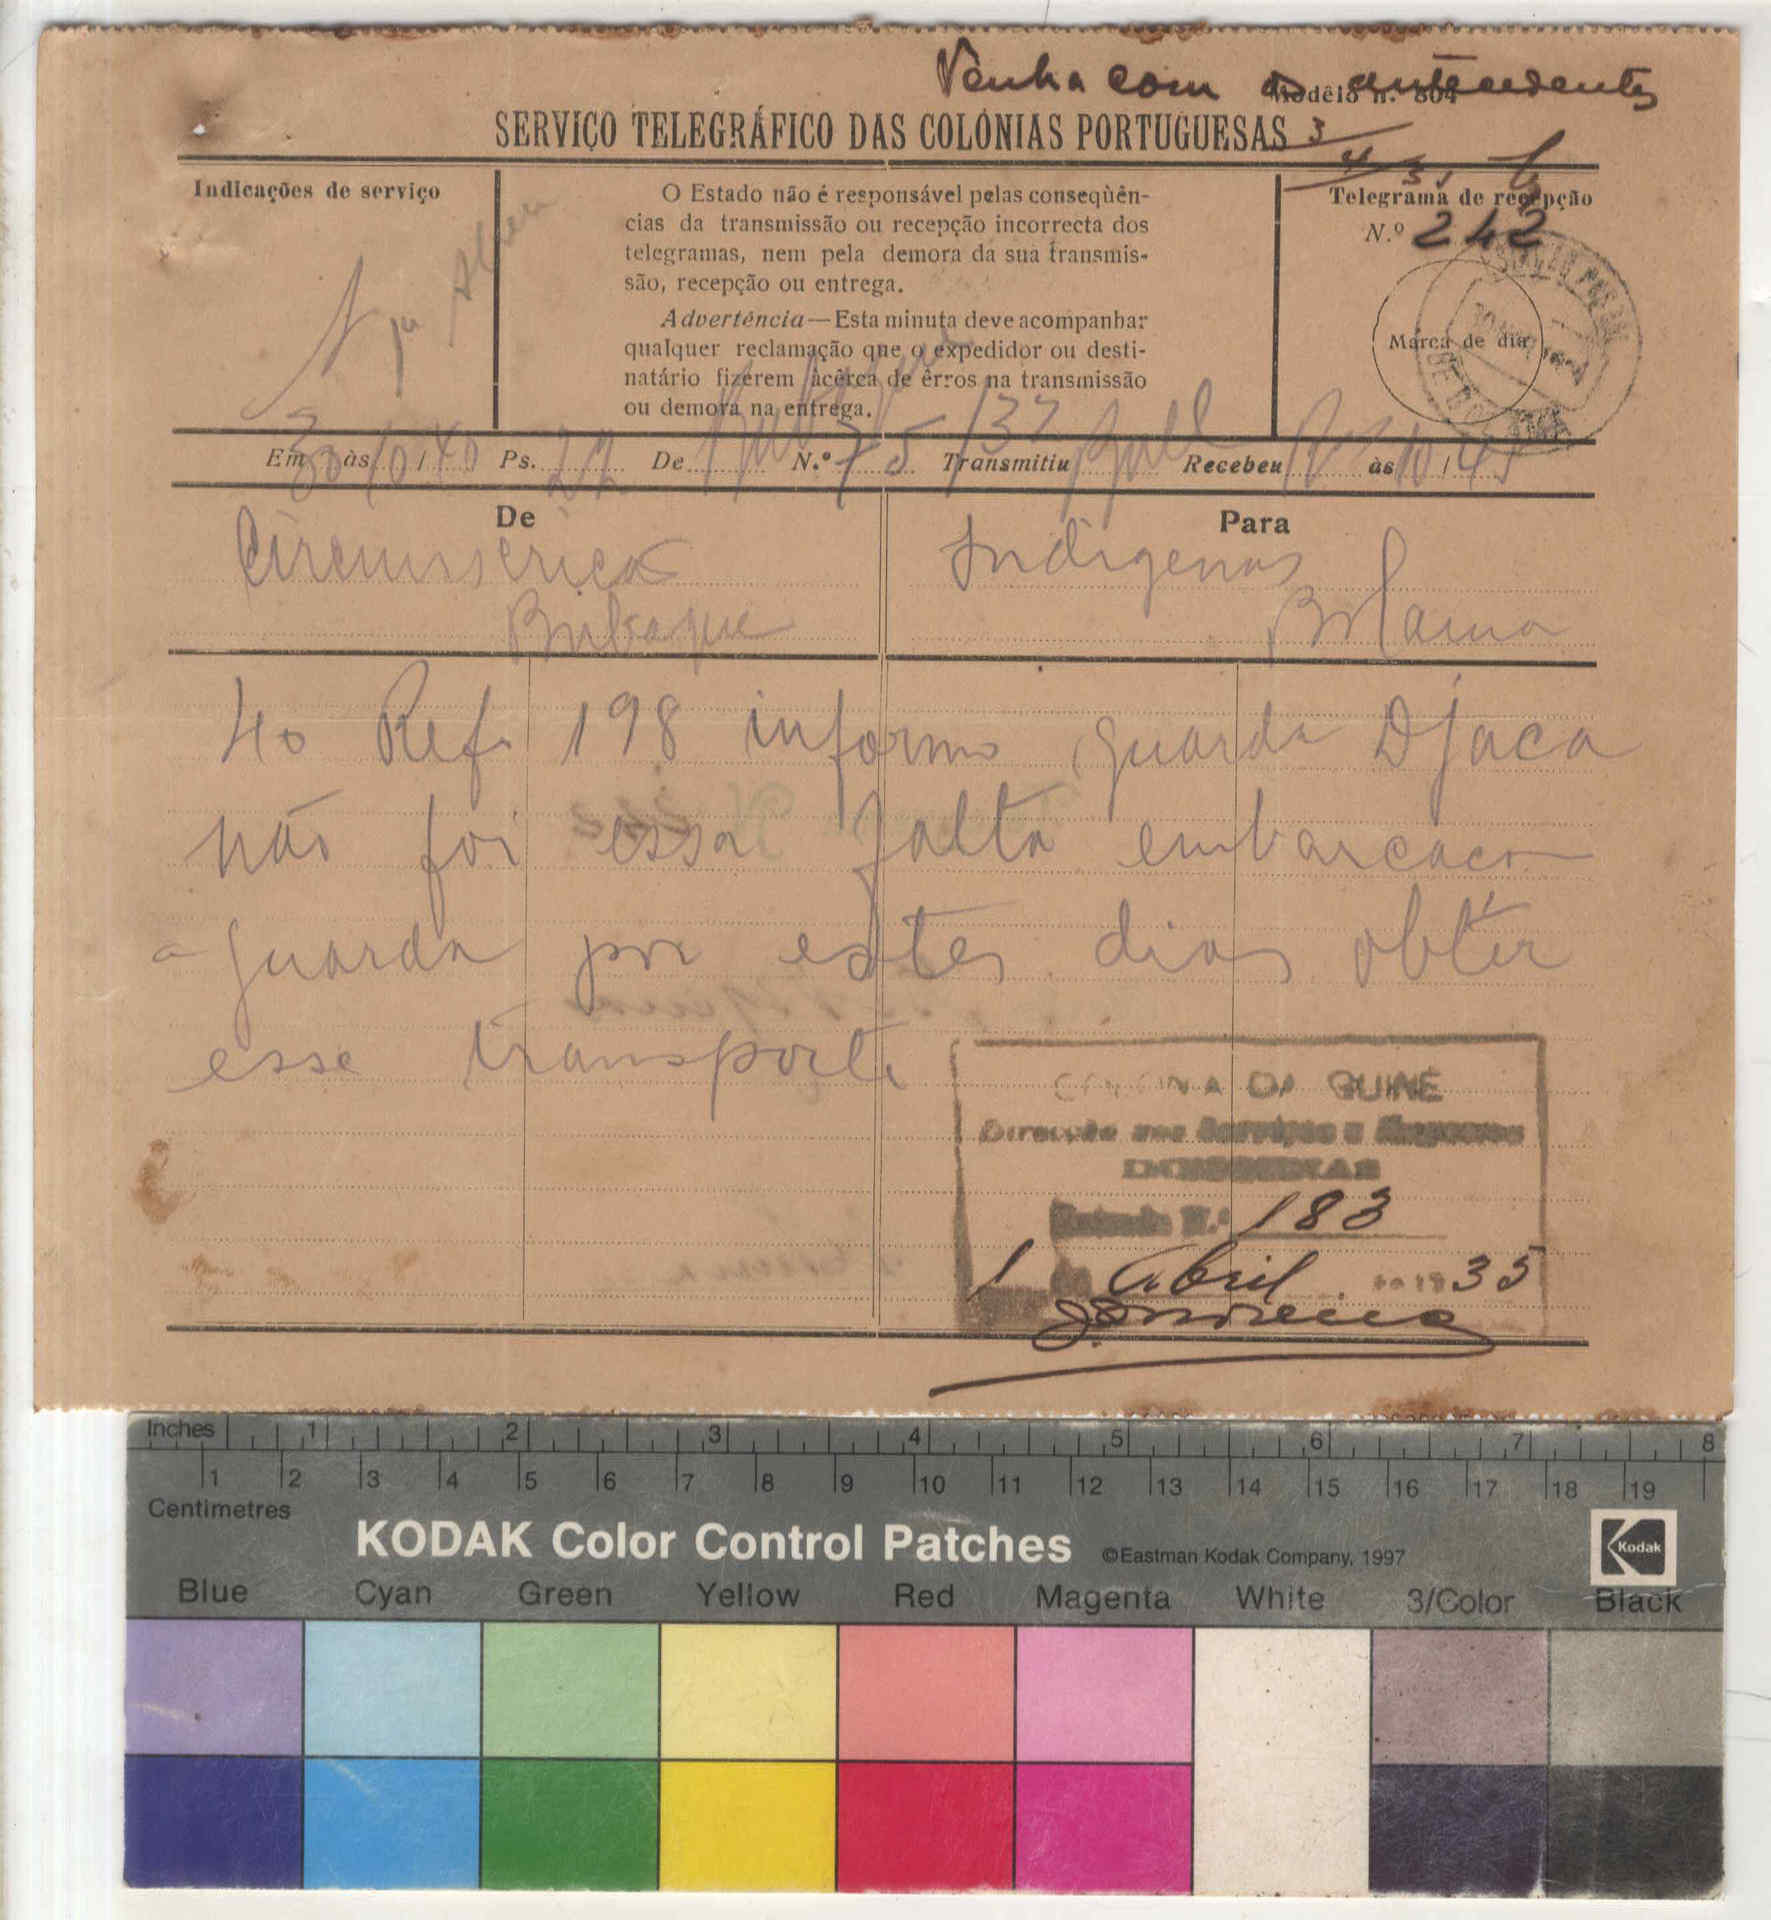 Venha com os antecedentes
Modêlo n.º 804
SERVIÇO TELEGRÁFICO DAS COLÓNIAS PORTUGUESAS
3/4/35
Indicações de serviço
O Estado não é responsável pelas conseqùên-
cias da transmissão ou recepção incorrecta dos
telegramas, nem pela demora da sua transmis-
são, recepção ou entrega.
Advertência—Esta minuta deve acompanhar
qualquer reclamação que o expedidor ou desti-
natário fizerem àcêrca de êrros na transmissão
ou demora na entrega.
Telegrama de recepção
N.º 242
Marca de dia
Em 30 às 10/40 Ps. 22 De Bubaque N.º 75/37 Transmitiu Recebeu às 10/45
De
Circunscrica
Bubaque
Para
Indigenas
Bolama
40 Ref. 198 informo guarda Djaca
não foi essa falta embarcacao
aguarda por estes dias obter
esse transporte
COLONIA DA GUINÉ
Direcção dos Serviços e Negocios
INDIGENAS
Entrada N.º 183
1 de Abril de 1935
Inches 1 2 3 4 5 6 7 8
1 2 3 4 5 6 7 8 9 10 11 12 13 14 15 16 17 18 19
Centimetres
KODAK Color Control Patches ©Eastman Kodak Company, 1997 Kodak
Blue Cyan Green Yellow Red Magenta White 3/Color Black